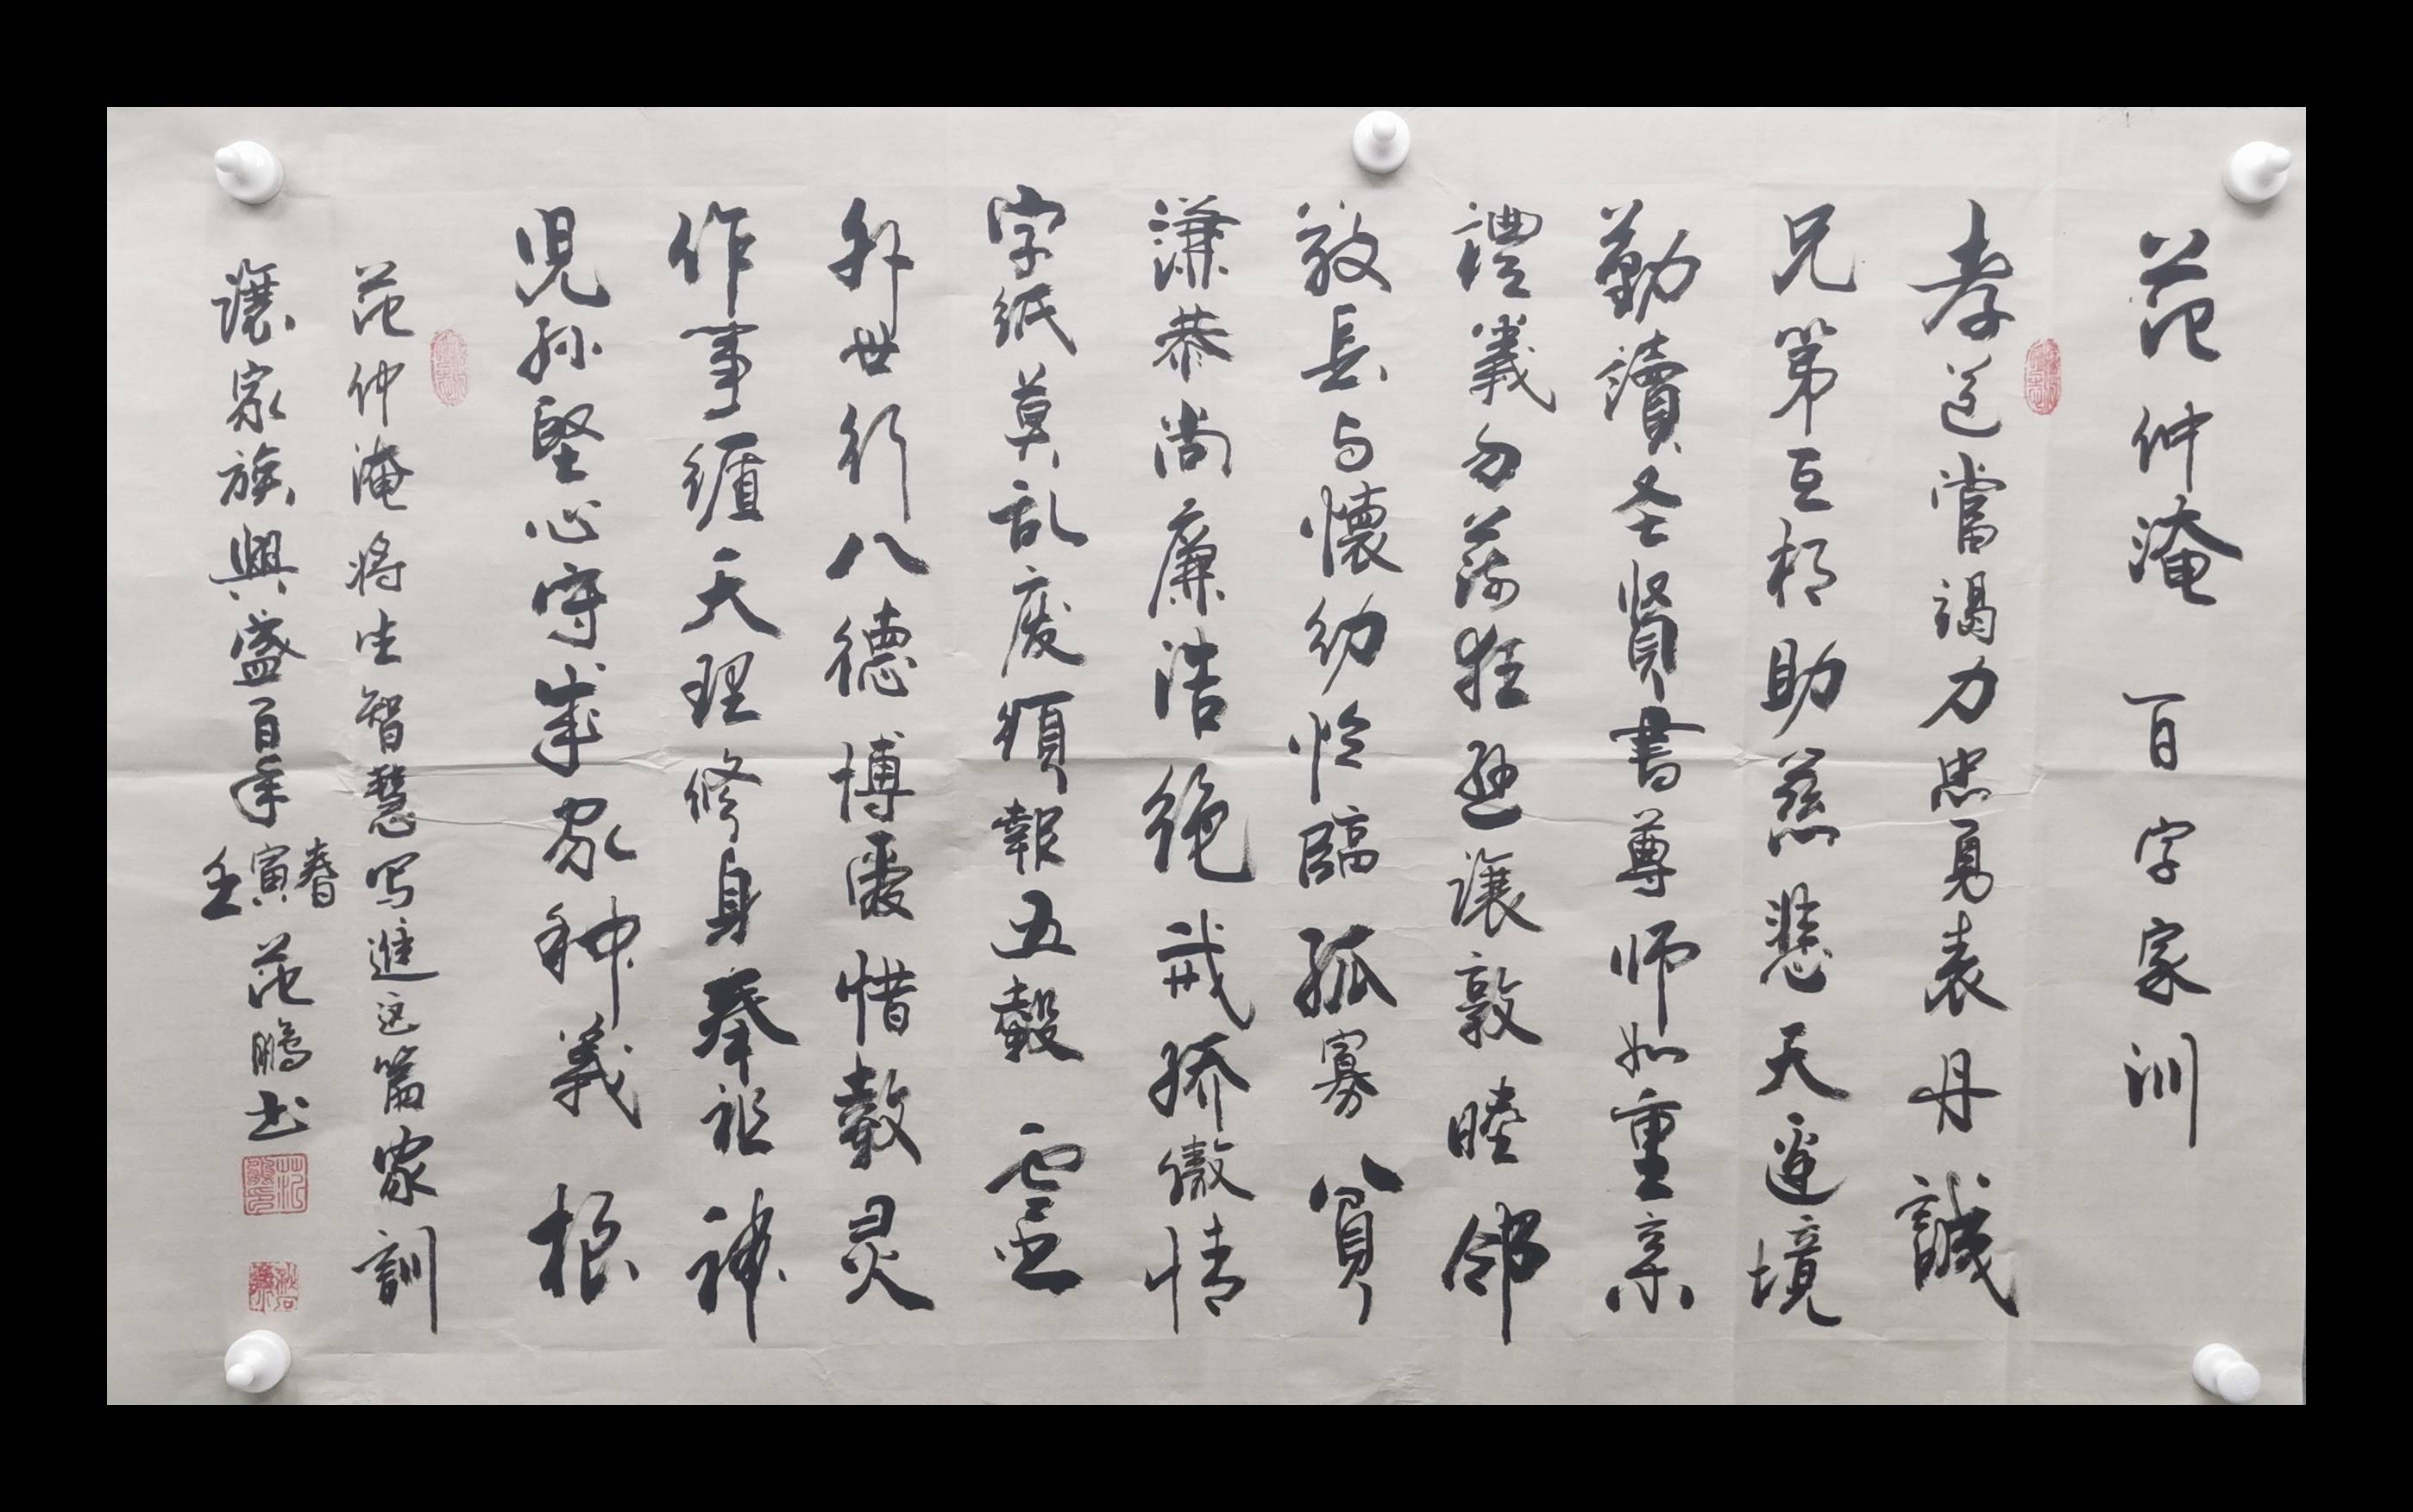 范仲淹 百字家训
孝道當竭力忠勇表丹誠
兄第互相助慈悲天邊境
勤讀圣贤書尊师如重亲
禮義勿狂逊讓敦睦邻
敬長与懷幼怜臨孤寡貧
谦恭尚廉洁绝戒骄傲情
字纸莫乱废須報五穀
世行八德博愛惜灵
作事循天理修身奉祖神
児孙堅心守成家种義根
范仲淹将生智慧写進这篇家訓
讓家族興盛百年 壬寅春 范鵬书